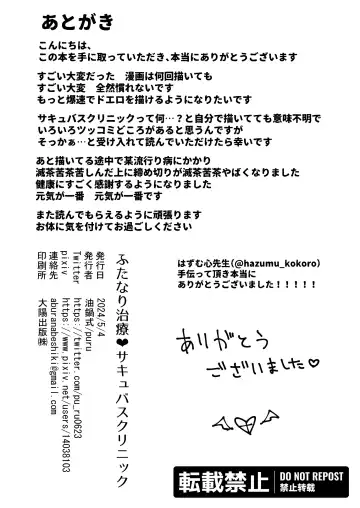 あとがき
こんにちは、
この本を手に取っていただき、本当にありがとうございます
すごい大変だった 漫画は何回描いても
すごい大変 全然慣れないです
もっと爆速でドエロを描けるようになりたいです
サキュバスクリニックって何…？と自分で描いてても意味不明で
いろいろツッコミどころがあると思うんですが
そっかぁ…と受け入れて読んでいただけたら幸いです
あと描いてる途中で某流行り病にかかり
滅茶苦茶苦しんだ上に締め切りが滅茶苦茶やばくなりました
健康にすごく感謝するようになりました
元気が一番 元気が一番です
また読んでもらえるように頑張ります
お体に気を付けてお過ごしください
はずむ心先生（@hazumu_kokoro）
手伝って頂き本当に
ありがとうございました！！！！！
ありがとう
ございました♡
ふたなり治療♥サキュバスクリニック
発行日 2024/5/4
発行者 油鍋式/puru
Twitter https://twitter.com/pu_ru0623
pixiv https://www.pixiv.net/users/14038103
連絡先 aburanabeshiki@gmail.com
印刷所 大陽出版㈱
転載禁止
DO NOT REPOST
禁止转载